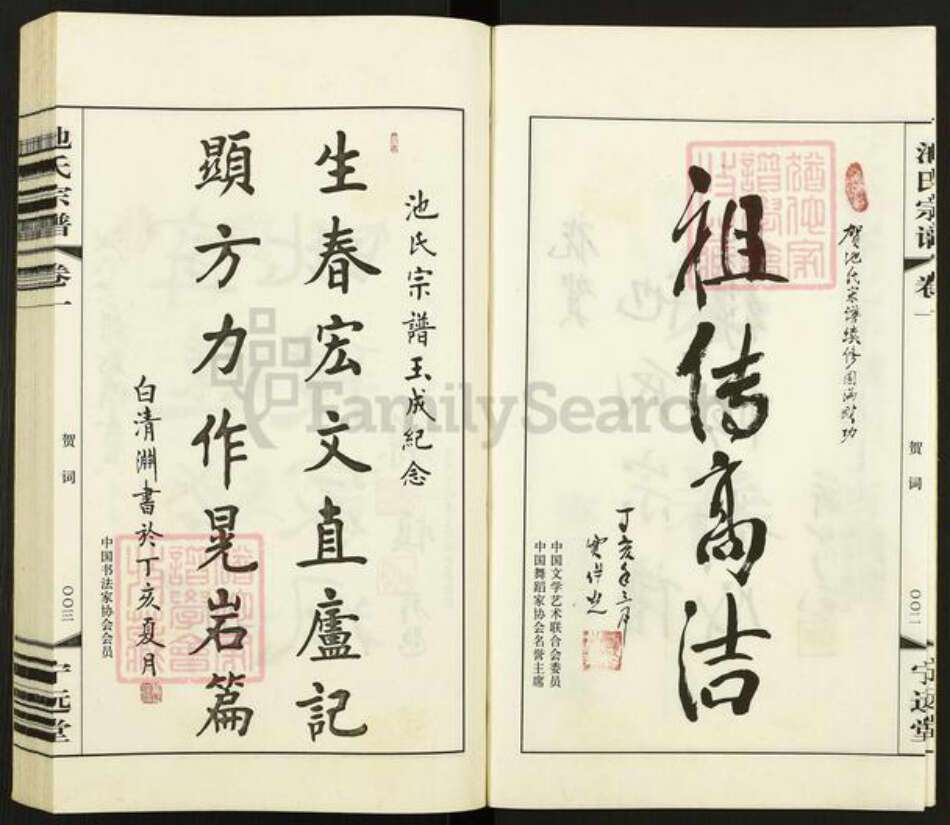 池氏宗谱 卷一
贺词
〇〇二
宁远堂
贺池氏宗谱续修圆满成功
祖传高洁
丁亥年三月
中国文学艺术联合会委员
中国舞蹈家协会名誉主席
池氏宗譜玉成紀念
生春宏文直廬記
顯方力作晃岩篇
白清淵書於丁亥夏月
中国书法家协会会员
池氏宗譜 卷一
贺词
〇〇三
宁远堂
FamilySearch